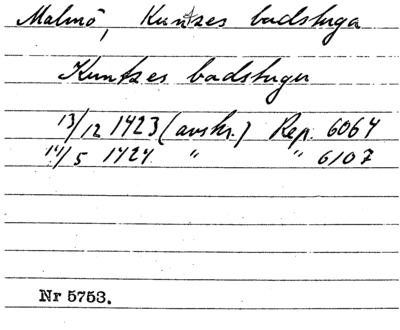 Malmö, Kuntzes badstuga
Kuntzes badstugu
13/12 1423 (avskr.) Rep. 6064
14/5 1424 " " 6107
Nr 5753.